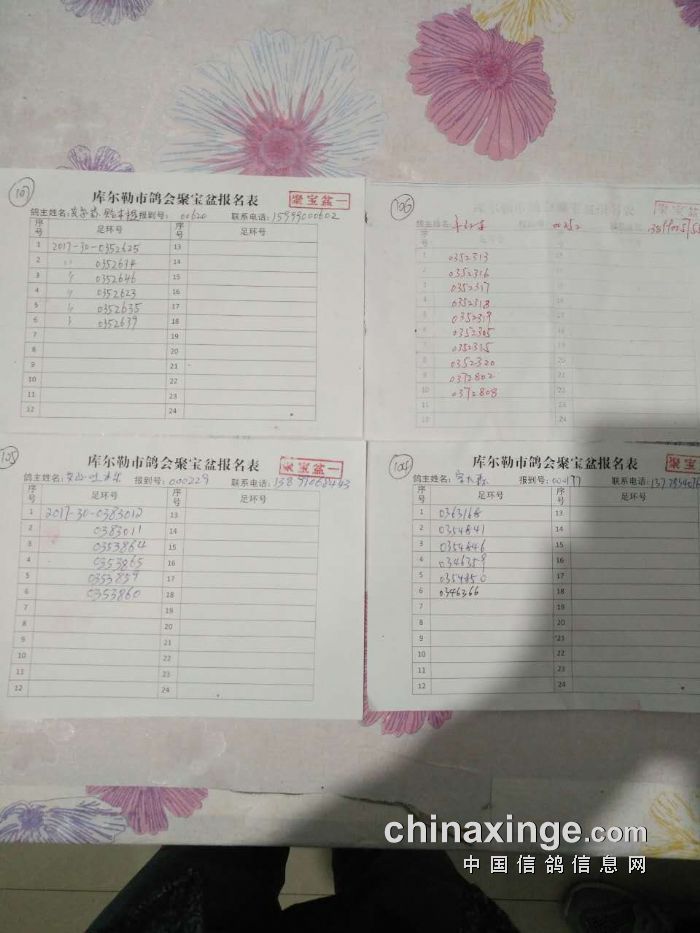 107
库尔勒市鸽会聚宝盆报名表
聚宝盆一
鸽主姓名: 报到号: 00620 联系电话: 15999000602
序号 足环号 序号 足环号
1 2017-30-0352625 13
2 〃 14
3 〃 0352646 15
4 〃 0352623 16
5 〃 0352635 17
6 〃 0352639 18
7 19
8 20
9 21
10 22
11 23
12 24
106
库尔勒市鸽会聚宝盆报名表
聚宝盆
鸽主姓名: 报到号: 00252 联系电话:
序号 足环号 序号 足环号
1 0352313
2 0352316
3 0352317
4 0352318
5 0352319
6 0352305
7 0352315
8 0352320
9 0372802
10 0372808
105
库尔勒市鸽会聚宝盆报名表
聚宝盆一
鸽主姓名: 报到号: 000229 联系电话:
序号 足环号 序号 足环号
1 2017-30-0383012 13
2 0383011 14
3 0353864 15
4 0353865 16
5 0353859 17
6 0353860 18
7 19
8 20
9 21
10 22
11 23
12 24
104
库尔勒市鸽会聚宝盆报名表
聚宝盆
鸽主姓名: 报到号: 00177 联系电话:
序号 足环号 序号 足环号
1 0363168 13
2 0354841 14
3 0354846 15
4 0346359 16
5 0354850 17
6 0346366 18
7 19
8 20
9 21
10 22
11 23
12 24
chinaxinge.com
中国信鸽信息网